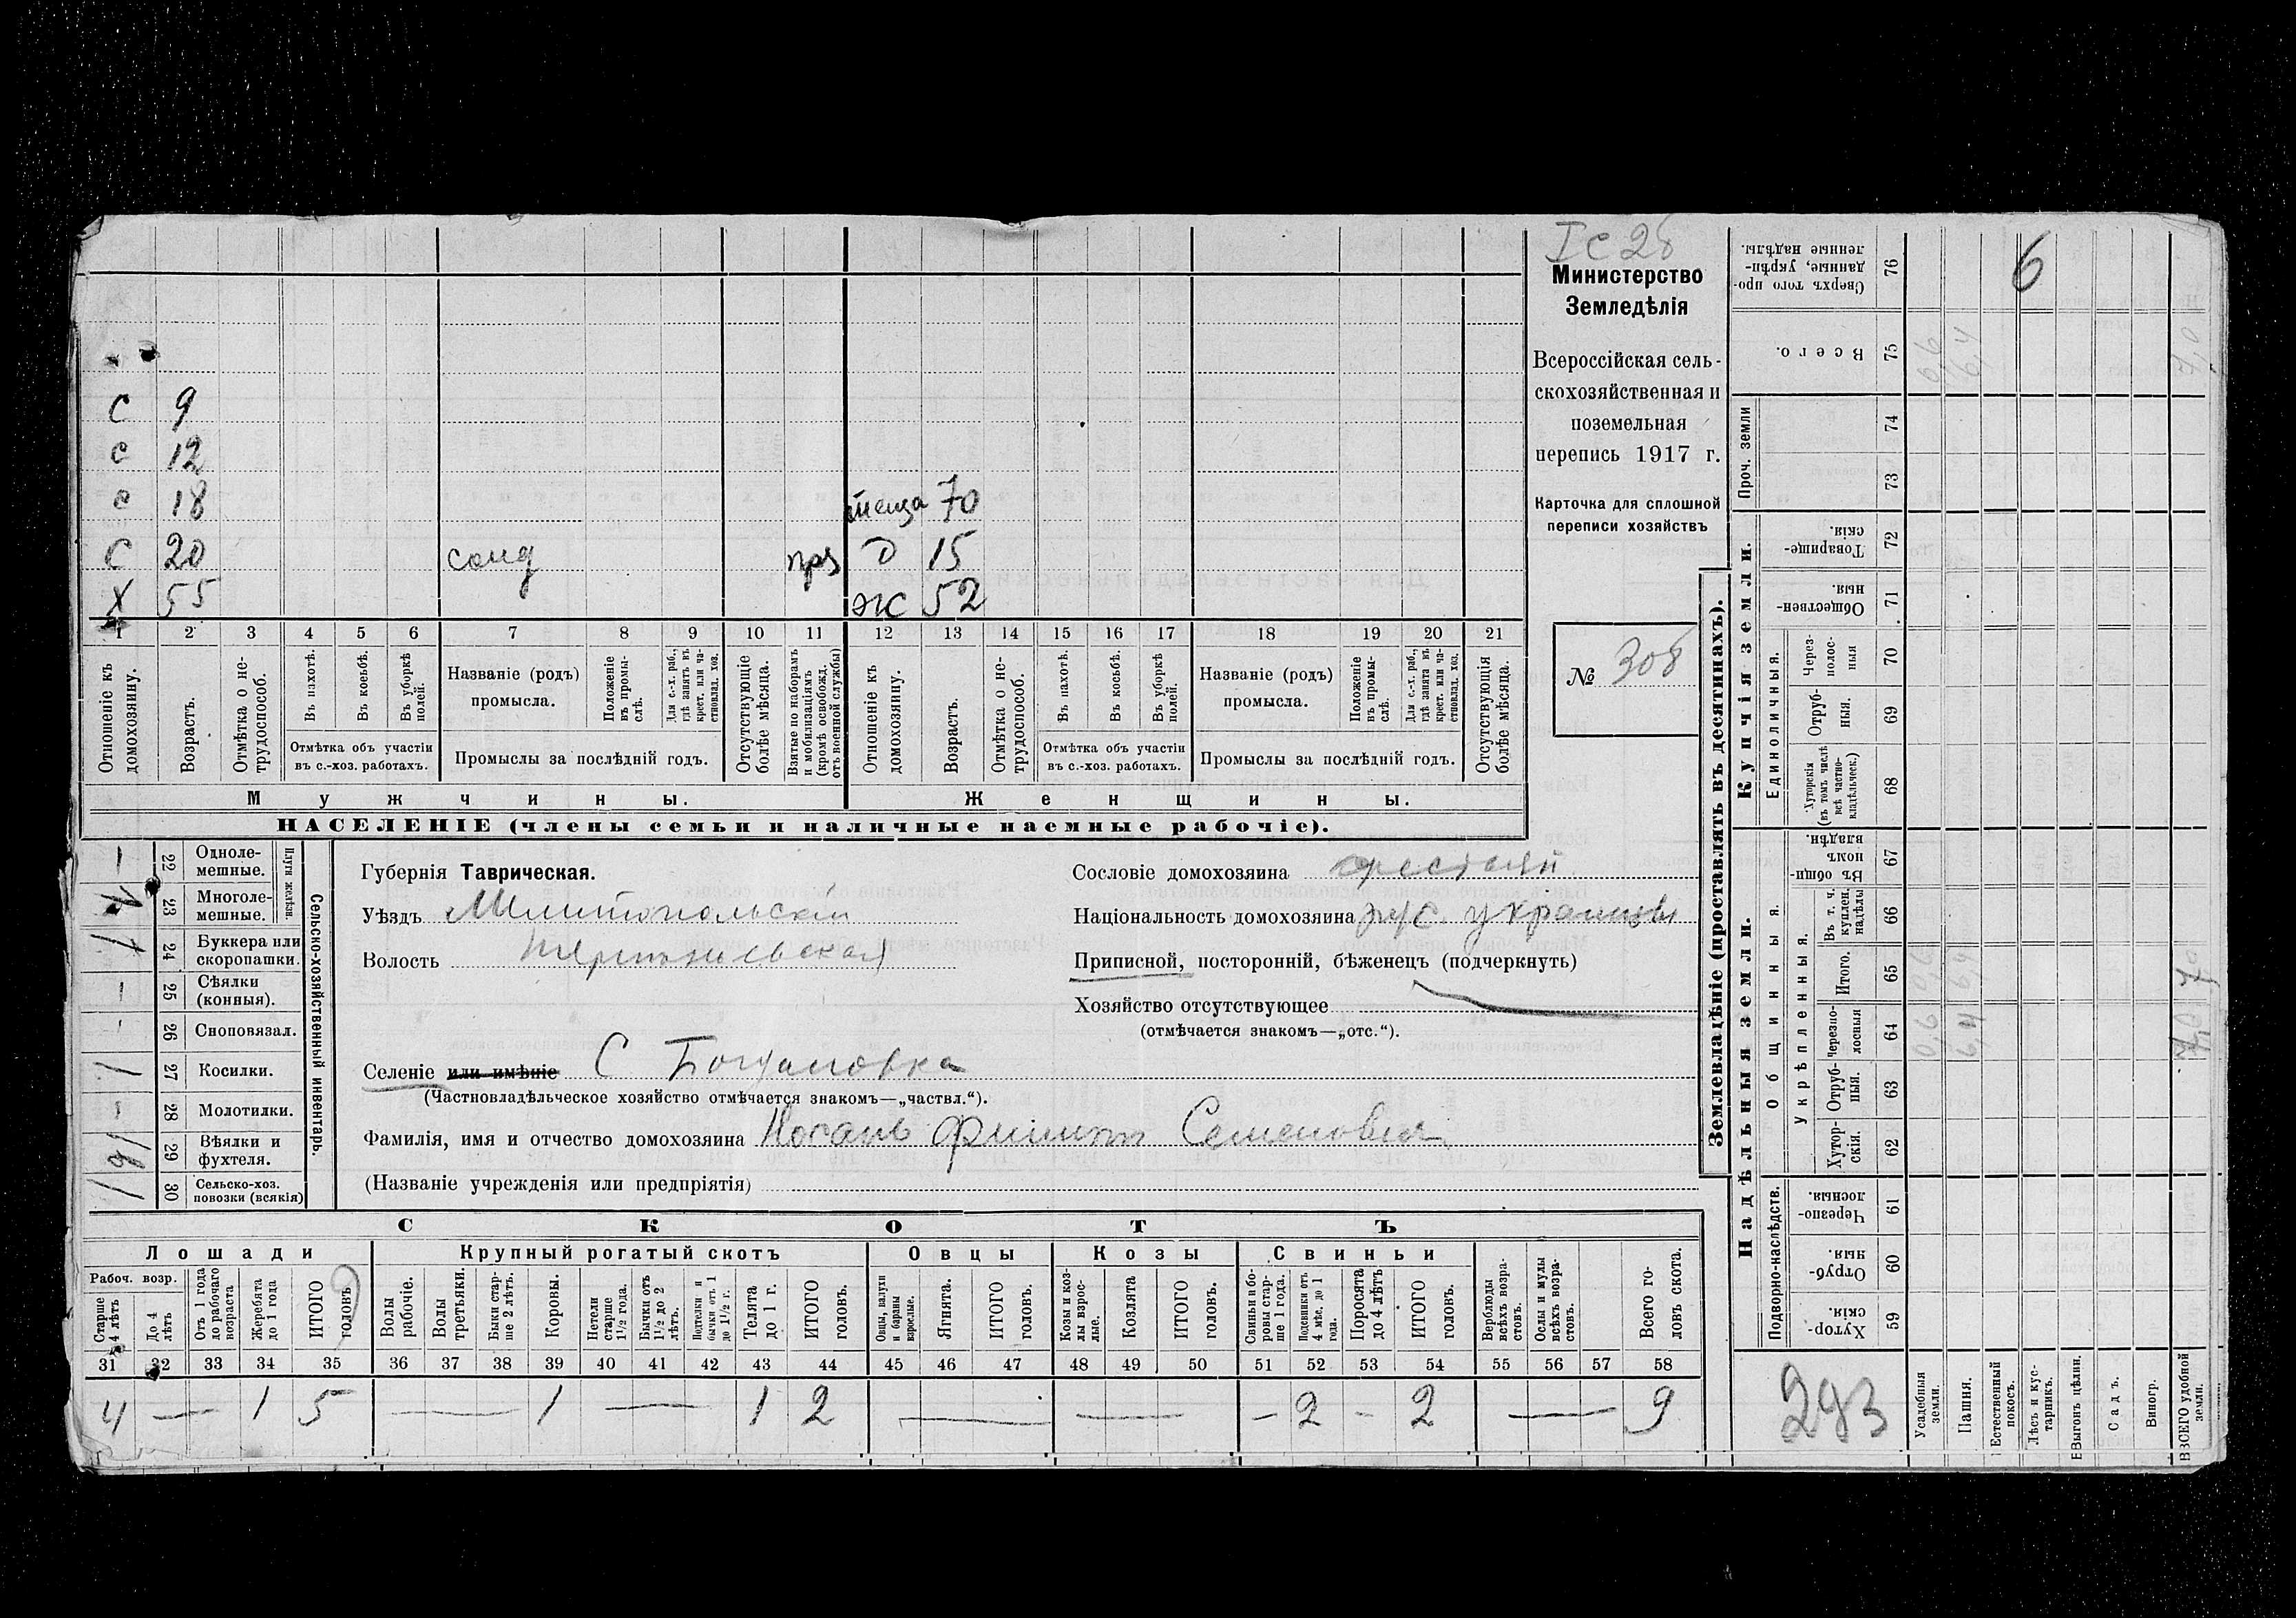 I С 2б
Министерство
Земледѣлія
Всероссійская сель-
скохозяйственная и
поземельная
перепись 1917 г.
Карточка для сплошной
переписи хозяйствъ
№ 308
С 9
С 12
С 18 теща 70
С 20 солд Д 15
Х 55 ж 52
1 2 3 4 5 6 7 8 9 10 11 12 13 14 15 16 17 18 19 20 21
Отношеніе къ домохозяину.
Возрастъ.
Отмѣтка о не-трудоспособ.
Въ пахотѣ.
Въ косьбѣ.
Въ уборкѣ полей.
Отмѣтка объ участіи
въ с.-хоз. работахъ.
Названіе (родъ)
промысла.
Положеніе въ промы-слѣ.
Для с.-х. раб., гдѣ занятъ въ крест. или ча-стновлад. хоз.
Промыслы за послѣдній годъ.
Отсутствующіе болѣе мѣсяца.
Взятые по наборамъ и мобилизаціямъ (кромѣ освобожд. отъ военной службы)
Отношеніе къ домохозяину.
Возрастъ.
Отмѣтка о не-трудоспособ.
Въ пахотѣ.
Въ косьбѣ.
Въ уборкѣ полей.
Отмѣтка объ участіи
въ с.-хоз. работахъ.
Названіе (родъ)
промысла.
Положеніе въ промы-слѣ.
Для с.-х. раб., гдѣ занята въ крест. или ча-стновлад. хоз.
Промыслы за послѣдній годъ.
Отсутствующія болѣе мѣсяца.
Мужчины. Женщины.
НАСЕЛЕНІЕ (члены семьи и наличные наемные рабочіе).
Сельско-хозяйственный инвентарь.
Плуги желѣзн.
22 Одноле-мешные.
23 Многоле-мешные.
24 Буккера или скоропашки.
25 Сѣялки (конныя).
26 Сноповязал.
27 Косилки.
28 Молотилки.
29 Вѣялки и фухтеля.
30 Сельско-хоз. повозки (всякія)
Губернія Таврическая.
Уѣздъ Мелитопольскій
Волость
Селеніе или имѣніе С Богдановка
(Частновладѣльческое хозяйство отмѣчается знакомъ—„частвл.“).
Фамилія, имя и отчество домохозяина Носань Филиппъ Семеновичъ
(Названіе учрежденія или предпріятія)
Сословіе домохозяина крестьян
Національность домохозяина рус. украинцы
Приписной, посторонній, бѣженецъ (подчеркнуть)
Хозяйство отсутствующее
(отмѣчается знакомъ—„отс.“).
СКОТЪ
Лошади Крупный рогатый скотъ Овцы Козы Свиньи
Рабоч. возр.
Старше 4 лѣтъ
До 4 лѣтъ
Отъ 1 года до рабочаго возраста
Жеребята до 1 года
ИТОГО головъ
Волы рабочіе.
Волы третьяки.
Быки стар-ше 2 лѣтъ.
Коровы.
Нетели старше 1½ года.
Бычки отъ 1½ до 2 лѣтъ.
Подтелки и бычки отъ 1 до 1½ г.
Телята до 1 г.
ИТОГО головъ.
Овцы, валухи и бараны взрослые.
Ягнята.
ИТОГО головъ.
Козы и коз-лы взрос-лые.
Козлята
ИТОГО головъ.
Свиньи и бо-ровы стар-ше 1 года.
Подсвинки отъ 4 мѣс. до 1 года.
Поросята до 4 лѣтъ
ИТОГО головъ.
Верблюды всѣхъ возра-стовъ.
Ослы и мулы всѣхъ возра-стовъ.
Всего го-ловъ скота.
31 32 33 34 35 36 37 38 39 40 41 42 43 44 45 46 47 48 49 50 51 52 53 54 55 56 57 58
4 — 1 5 — 1 — 1 2 — — – 2 – 2 — 9
Землевладѣніе (проставлять въ десятинахъ).
Сверхъ того про-данные, укрѣп-ленные надѣлы. 76
6
Всего. 75
0,6 6,4 7,0
Купчія земли.
Проч. земли
74
73
Товарище-скія. 72
Обществен-ныя. 71
Единоличныя.
Через-полос-ныя 70
Отруб-ныя. 69
Хуторскія (въ томъ числѣ всѣ частно-владѣльческ.) 68
Надѣльныя земли.
Общинныя.
Въ общин-номъ владѣн. 67
Укрѣпленныя.
Въ т. ч. куплен. надѣлы 66
Итого. 65
Черезпо-лосныя 64
0,6 6,4 7,0
Отруб-ныя. 63
Хутор-скія. 62
Подворно-наслѣдств.
Черезпо-лосныя. 61
Отруб-ныя. 60
Хутор-скія. 59
293
Усадебныя земли.
Пашня.
Естественный покосъ.
Лѣсъ и кус-тарникъ.
Выгонъ цѣлин.
Садъ.
Виногр.
ВСЕГО удобной земли.